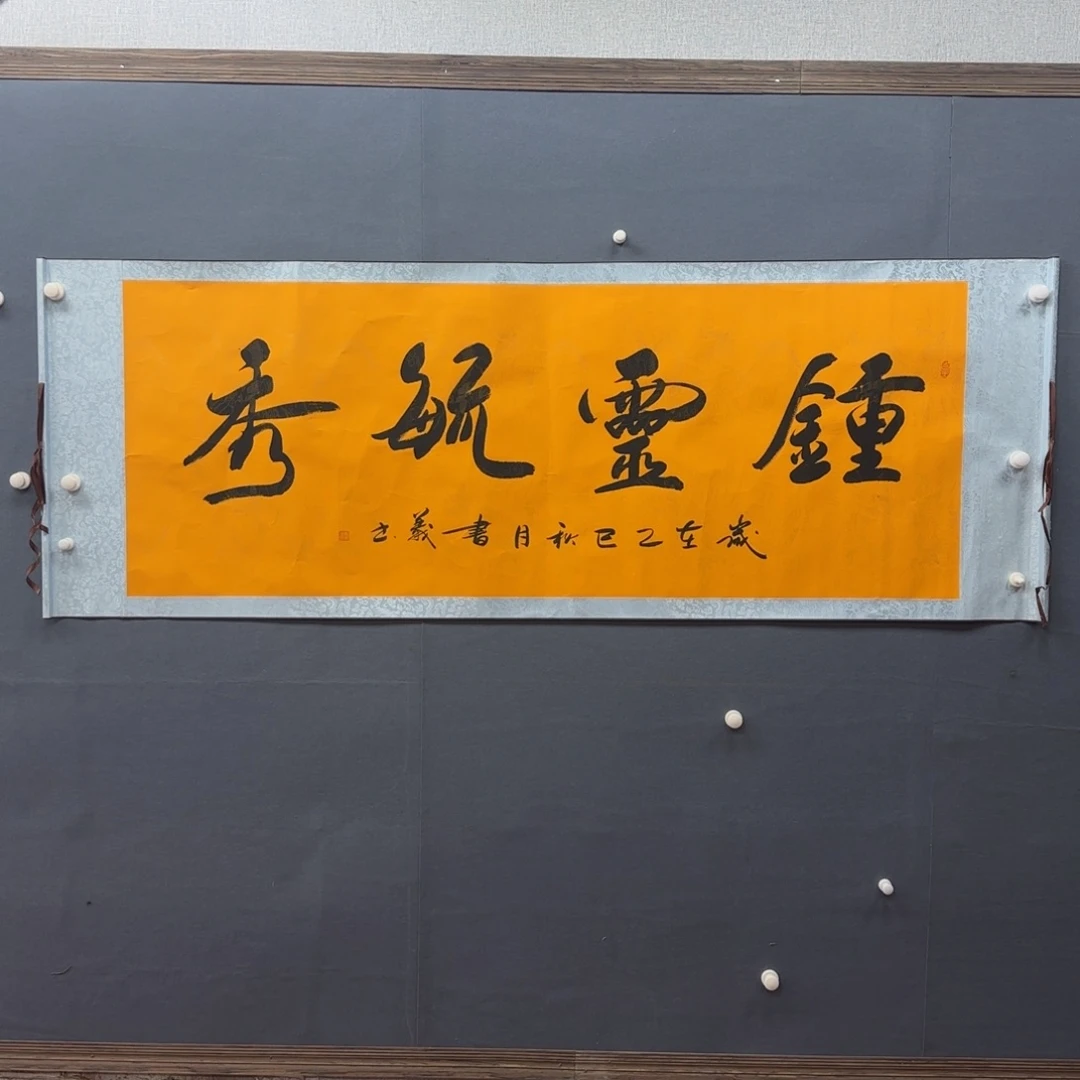 鍾靈毓秀
歲在乙巳秋月書義之